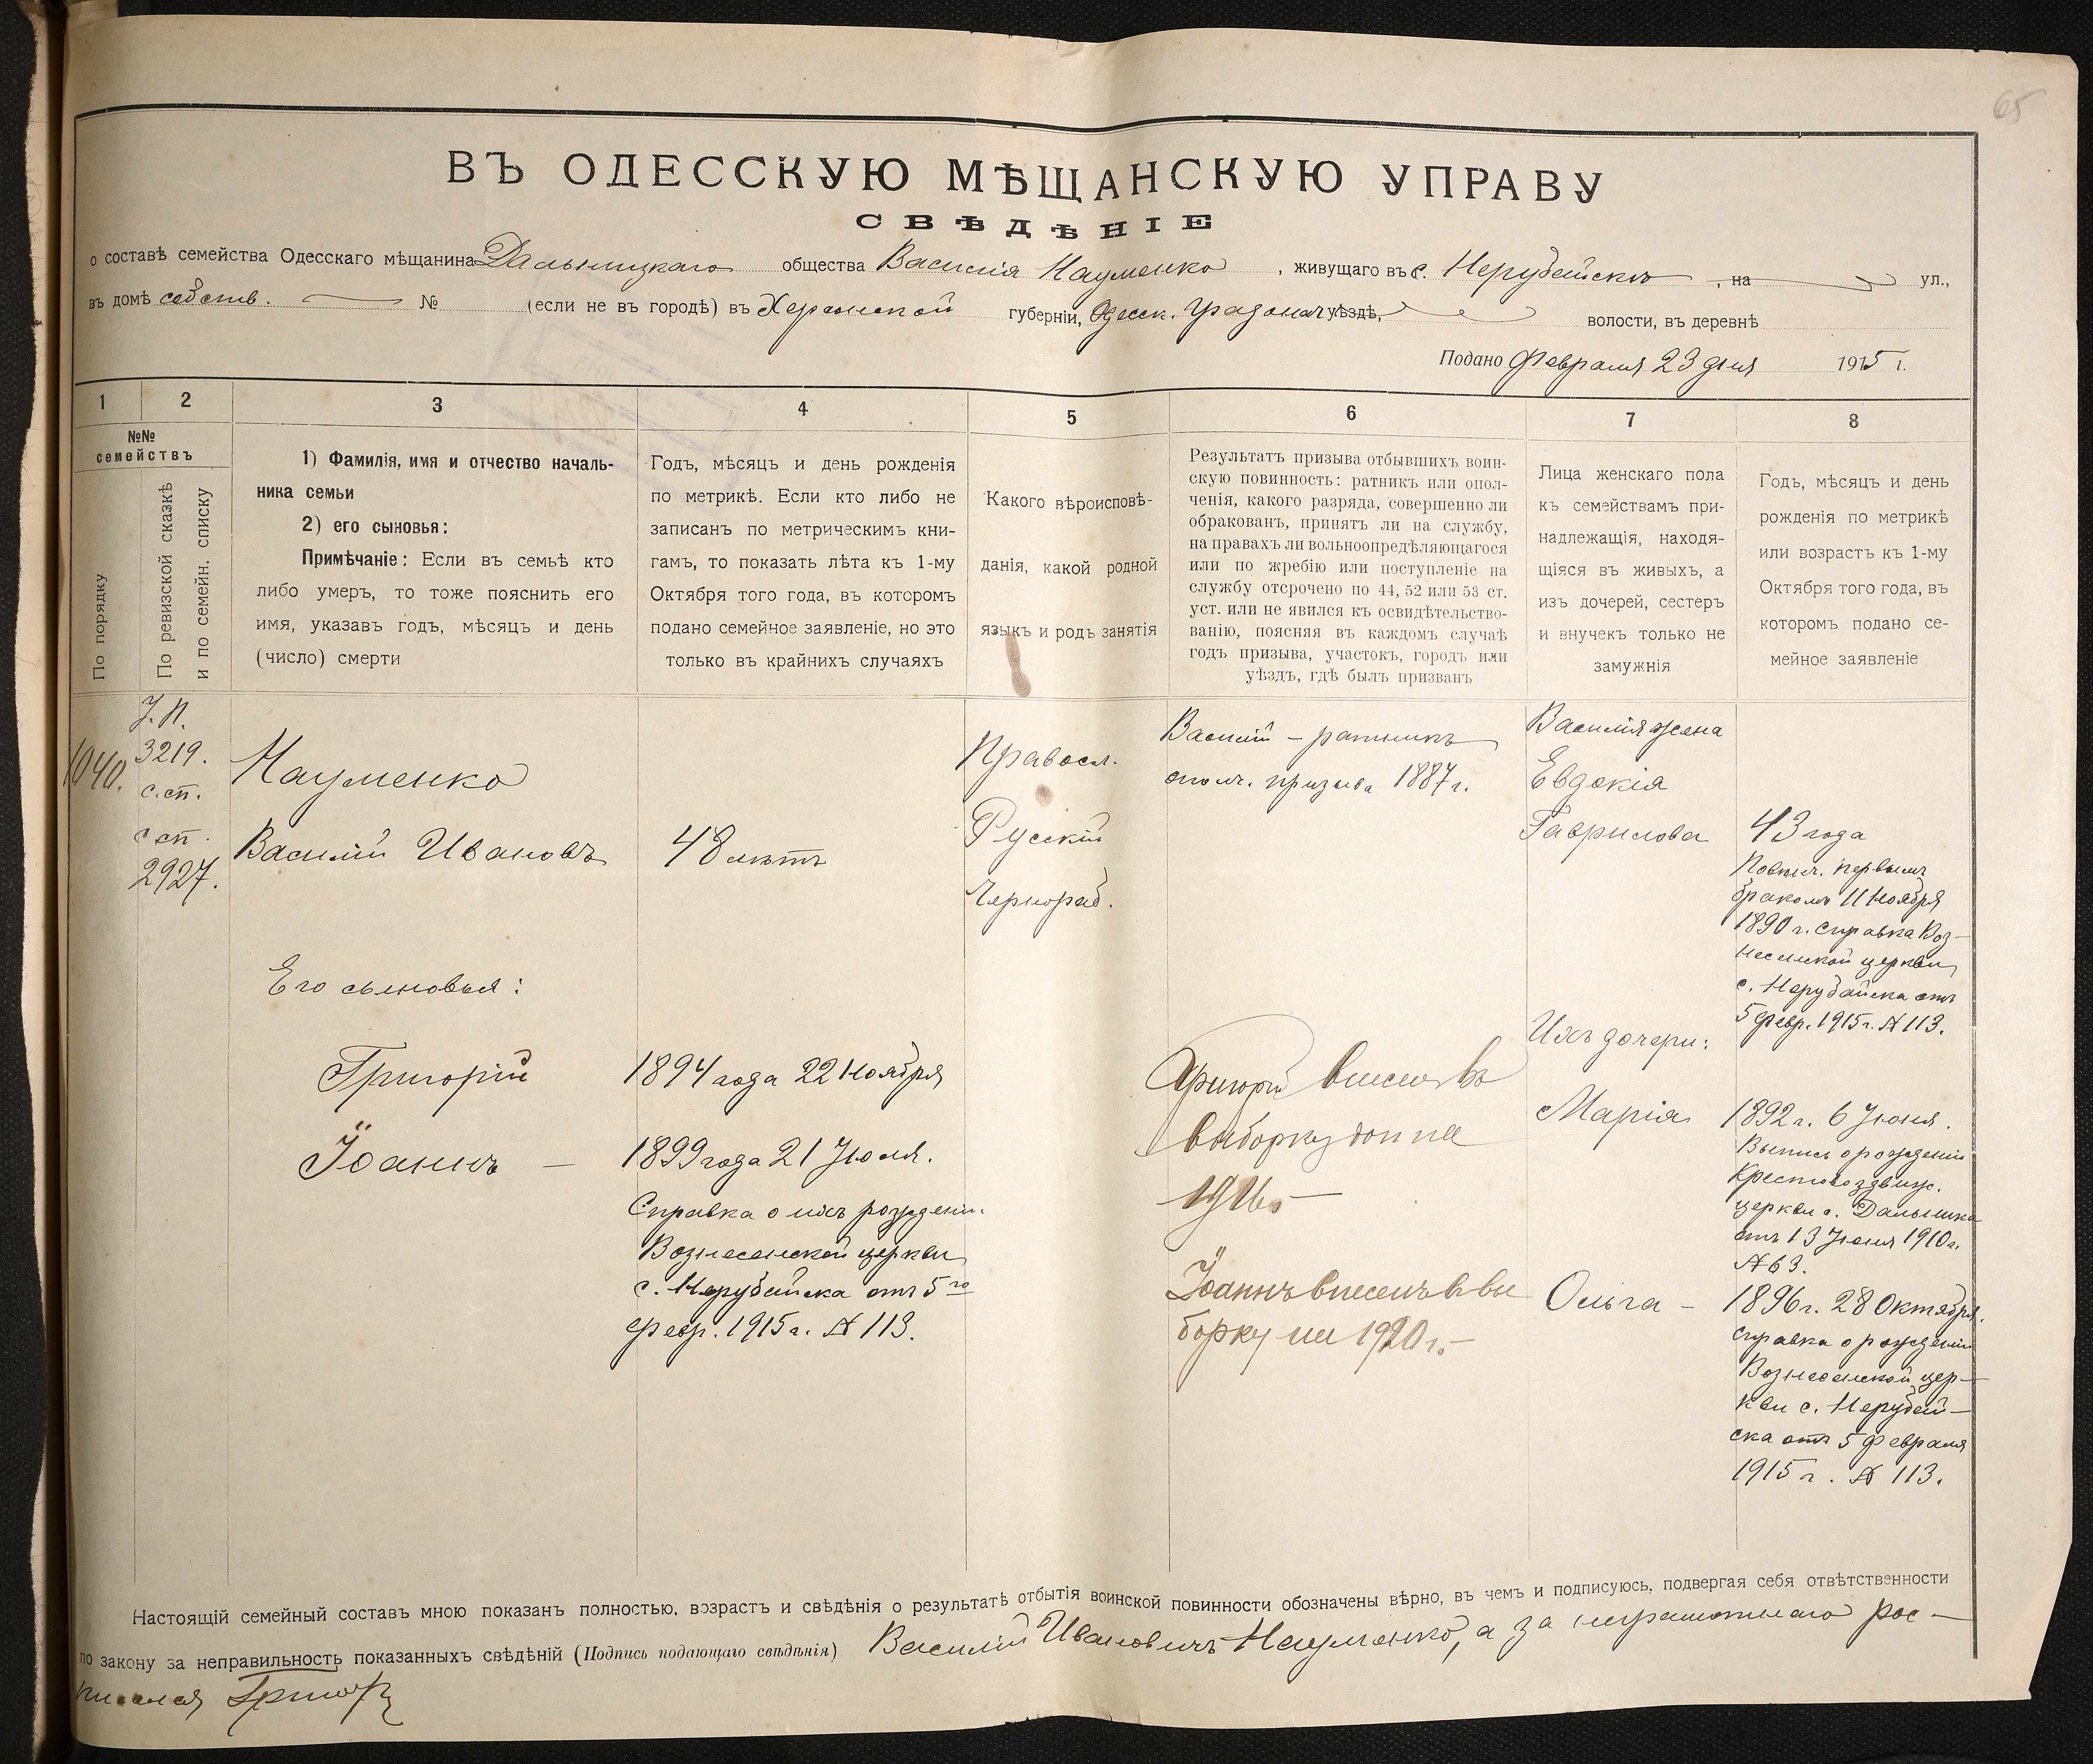 65
ВЪ ОДЕССКУЮ МѢЩАНСКУЮ УПРАВУ
СВѢДѢНІЕ
о составѣ семейства Одесскаго мѣщанина Дальницкаго общества Василія Науменко, живущаго въ с. Нерубайскъ, на ул.,
въ домѣ собств. № (если не въ городѣ) въ Херсонской губерніи, Одесск. Градонач уѣздѣ, волости, въ деревнѣ
Подано Февраля 23 дня 1915 г.
1 2 3 4 5 6 7 8
№№
семействъ
По порядку
По ревизской сказкѣ
и по семейн. списку
1) Фамилія, имя и отчество началь-
ника семьи
2) его сыновья:
Примѣчаніе: Если въ семьѣ кто
либо умеръ, то тоже пояснить его
имя, указавъ годъ, мѣсяцъ и день
(число) смерти
Годъ, мѣсяцъ и день рожденія
по метрикѣ. Если кто либо не
записанъ по метрическимъ кни-
гамъ, то показать лѣта къ 1-му
Октября того года, въ которомъ
подано семейное заявленіе, но это
только въ крайнихъ случаяхъ
Какого вѣроисповѣ-
данія, какой родной
языкъ и родъ занятія
Результатъ призыва отбывшихъ воин-
скую повинность: ратникъ или опол-
ченія, какого разряда, совершенно ли
обракованъ, принятъ ли на службу,
на правахъ ли вольноопредѣляющагося
или по жребію или поступленіе на
службу отсрочено по 44, 52 или 53 ст.
уст. или не явился къ освидѣтельство-
ванію, поясняя въ каждомъ случаѣ
годъ призыва, участокъ, городъ или
уѣздъ, гдѣ былъ призванъ
Лица женскаго пола
къ семействамъ при-
надлежащія, находя-
щіяся въ живыхъ, а
изъ дочерей, сестеръ
и внучекъ только не
замужнія
Годъ, мѣсяцъ и день
рожденія по метрикѣ
или возрастъ къ 1-му
Октября того года, въ
которомъ подано се-
мейное заявленіе
1040.
3219.
с.сп.
с сп.
2927.
Науменко
Василій Ивановъ
Его сыновья:
Григорій
Іоаннъ —
48 лѣтъ
1894 года 22 Ноября
1899 года 21 Іюля.
Справка о ихъ рожден.
Вознесенской церкви
с. Нерубайска отъ 5го
февр. 1915 г. № 113.
Правосл.
Русскій
Чернораб.
Василій – ратникъ
ополч. призыва 1887 г.
Григорій внесенъ въ
выборку доп на
1916 —
Іоаннъ внесенъ въ вы
борку на 1920 г. —
Василія жена
Евдокія
Гаврилова
Ихъ дочери:
Марія
Ольга –
43 года
Повѣнч. первымъ
бракомъ 11 Ноября
1890 г. справка Воз-
несенской церкви
с. Нерубайска отъ
5 февр. 1915 г. № 113.
1892 г. 6 Іюня.
Выпись о рожденіи
Крестовоздвиж.
церкви с. Дальника
отъ 13 Іюня 1910 г.
№ 63.
1896 г. 28 Октября.
справка о рожденіи
Вознесенской цер-
кви с. Нерубай-
ска отъ 5 Февраля
1915 г. № 113.
Настоящій семейный составъ мною показанъ полностью, возрастъ и свѣдѣнія о результатѣ отбытія воинской повинности обозначены вѣрно, въ чемъ и подписуюсь, подвергая себя отвѣтственности
по закону за неправильность показанныхъ свѣдѣній (Подпись подающаго свѣдѣнія) Василій Ивановичъ Науменко, а за неграмотнаго рос-
писался